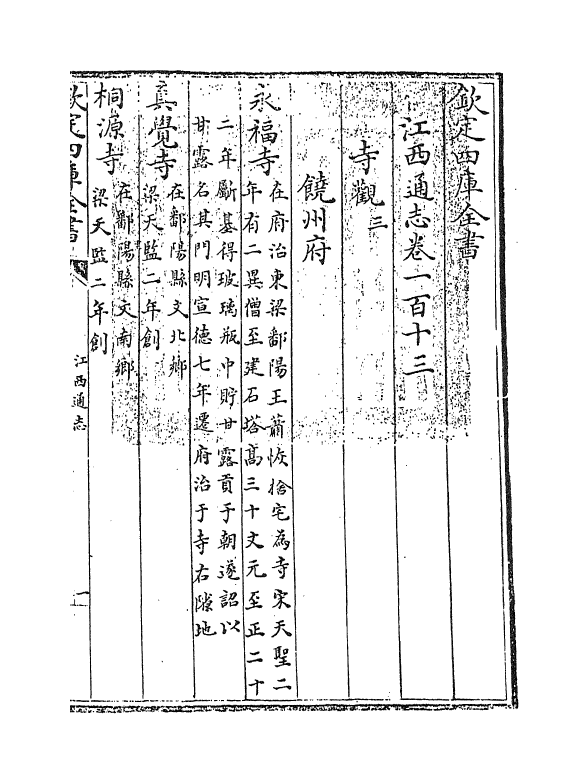 欽定四庫全書
江西通志卷一百十三
寺觀三
饒州府
永福寺
在府治東梁鄱陽王蕭恢捨宅為寺宋天聖二
年有二異僧至建石塔髙三十丈元至正二十
二年斸基得玻璃瓶中貯甘露貢于朝遂詔以
甘露名其門明宣德七年遷府治于寺右隙地
真覺寺
在鄱陽縣文北鄉
梁天監二年創
桐源寺
在鄱陽縣文南鄉
梁天監二年創
欽定四庫全書
江西通志
一